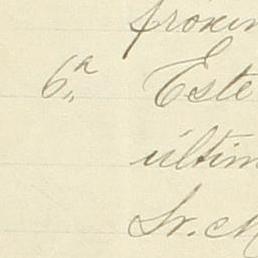 proxim
6ª Este
últim
Sr. M